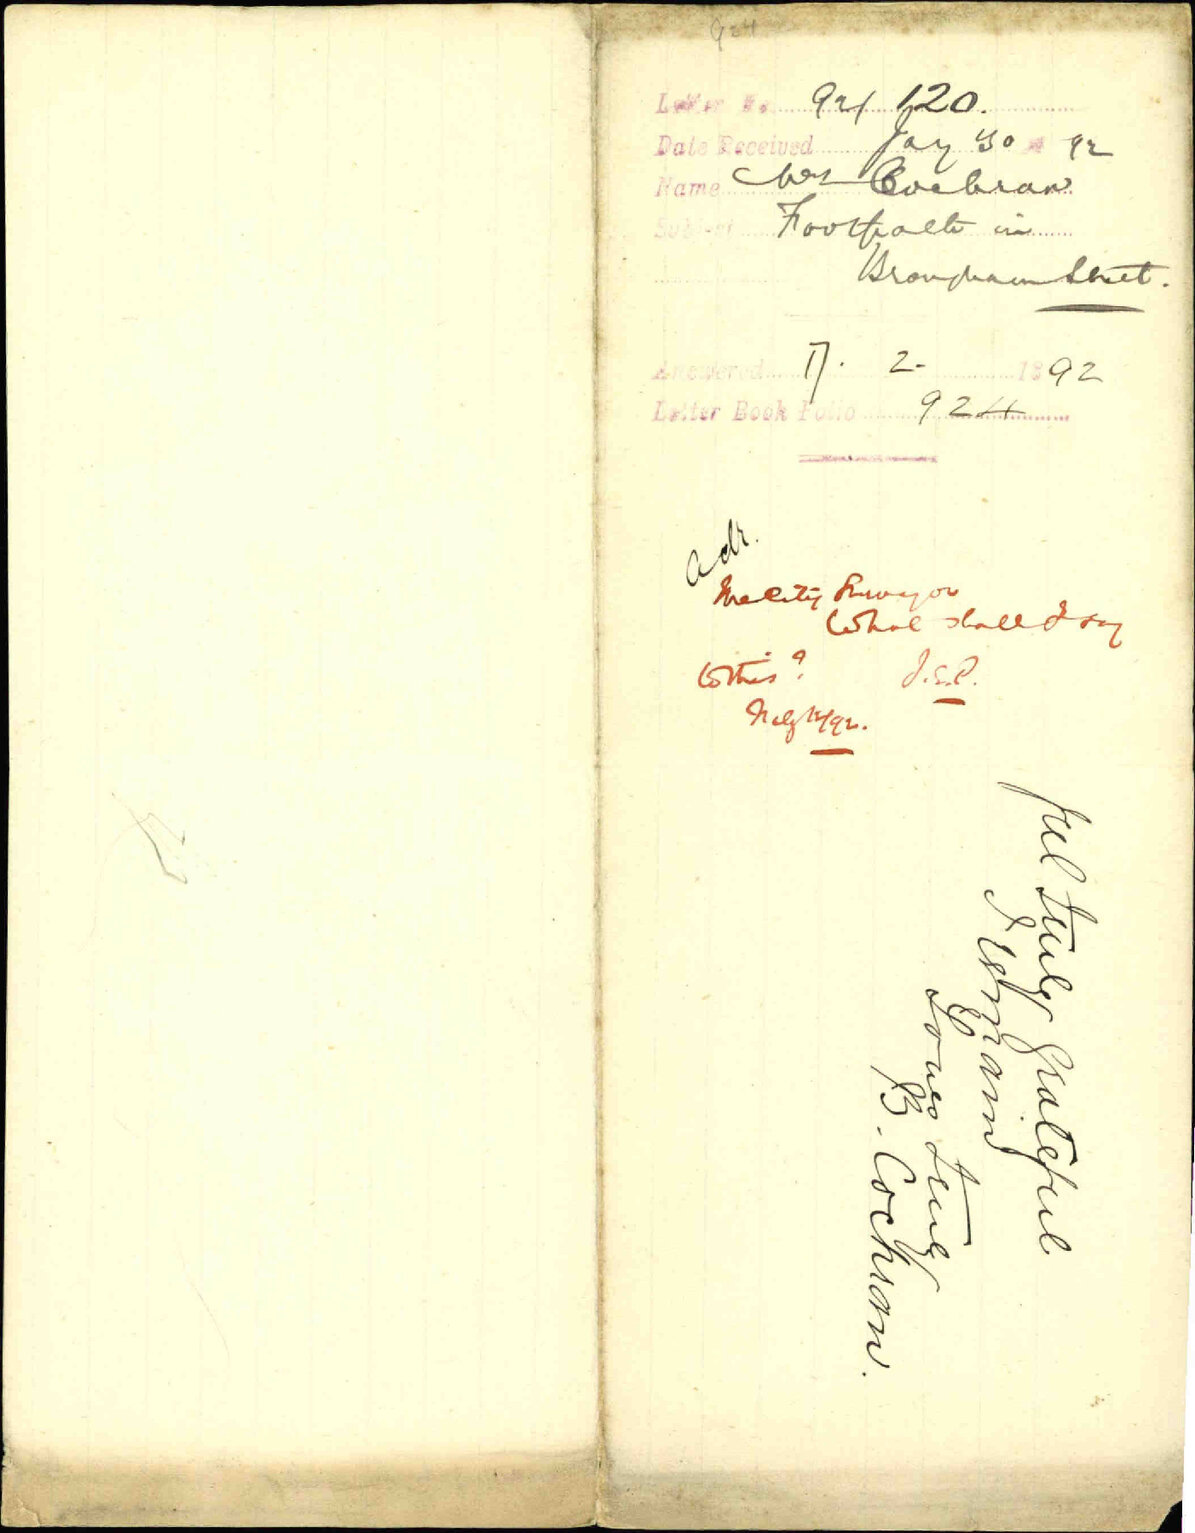 924
Letter No. 92/120.
Date Received Jay 30 92
Name Mrs Cochran
Subject Footpath in
Brougham Street.
Answered 17. 2- 1892
Letter Book Folio 924
adr.
The City Surveyor
What shall I say
to this? J.S.P.
92.
feel truly grateful
I remain
Yours truly
B. Cochran.